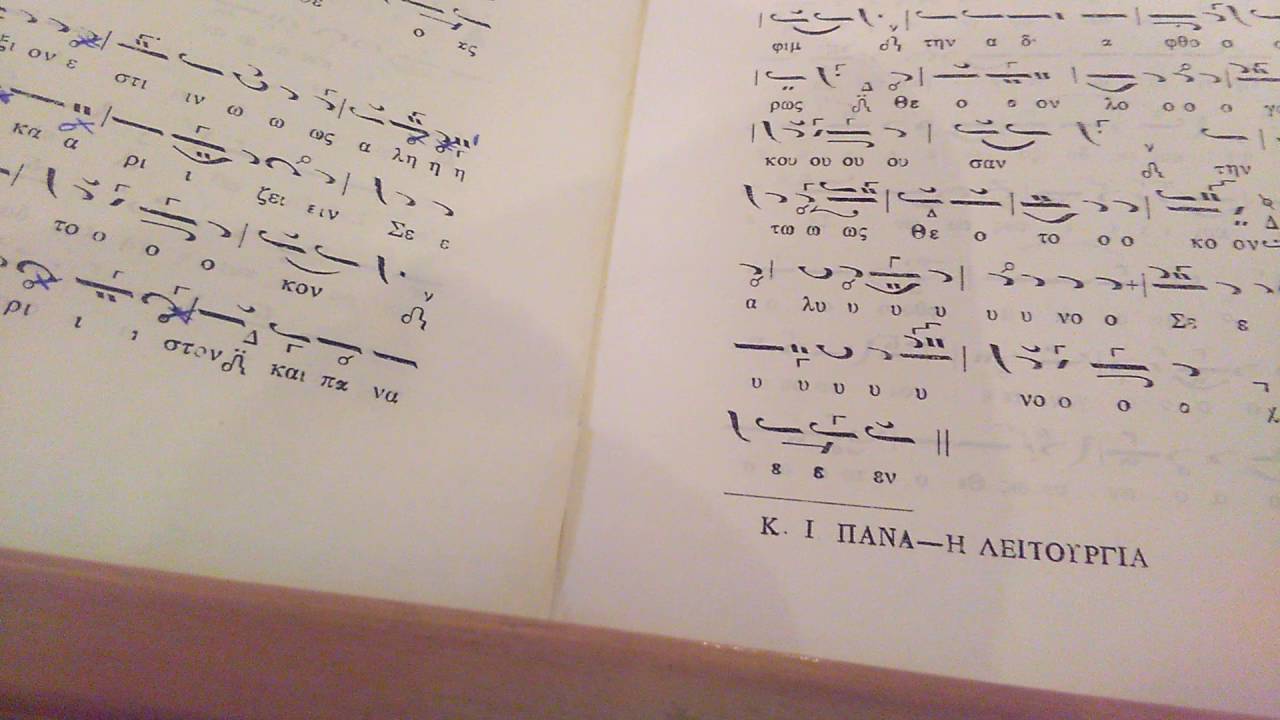 ο ας
ξι ον ε στι ιν ω ω ως α λη η η
κα α ρι ι ζει ειν Σε ε
το ο ο ο κον
ρι ι ι στον και πα να
φιμ την α δι α φθο ο
ρως Θε ο ο ον λο ο ο ο
κου ου ου ου σαν την
τω ω ως Θε ο το ο ο κο ον
α λυ υ υ υ υ υ νο ο Σε ε
υ υ υ υ υ νο ο ο ο
ε ε εν
Κ. Ι ΠΑΝΑ—Η ΛΕΙΤΟΥΡΓΙΑ